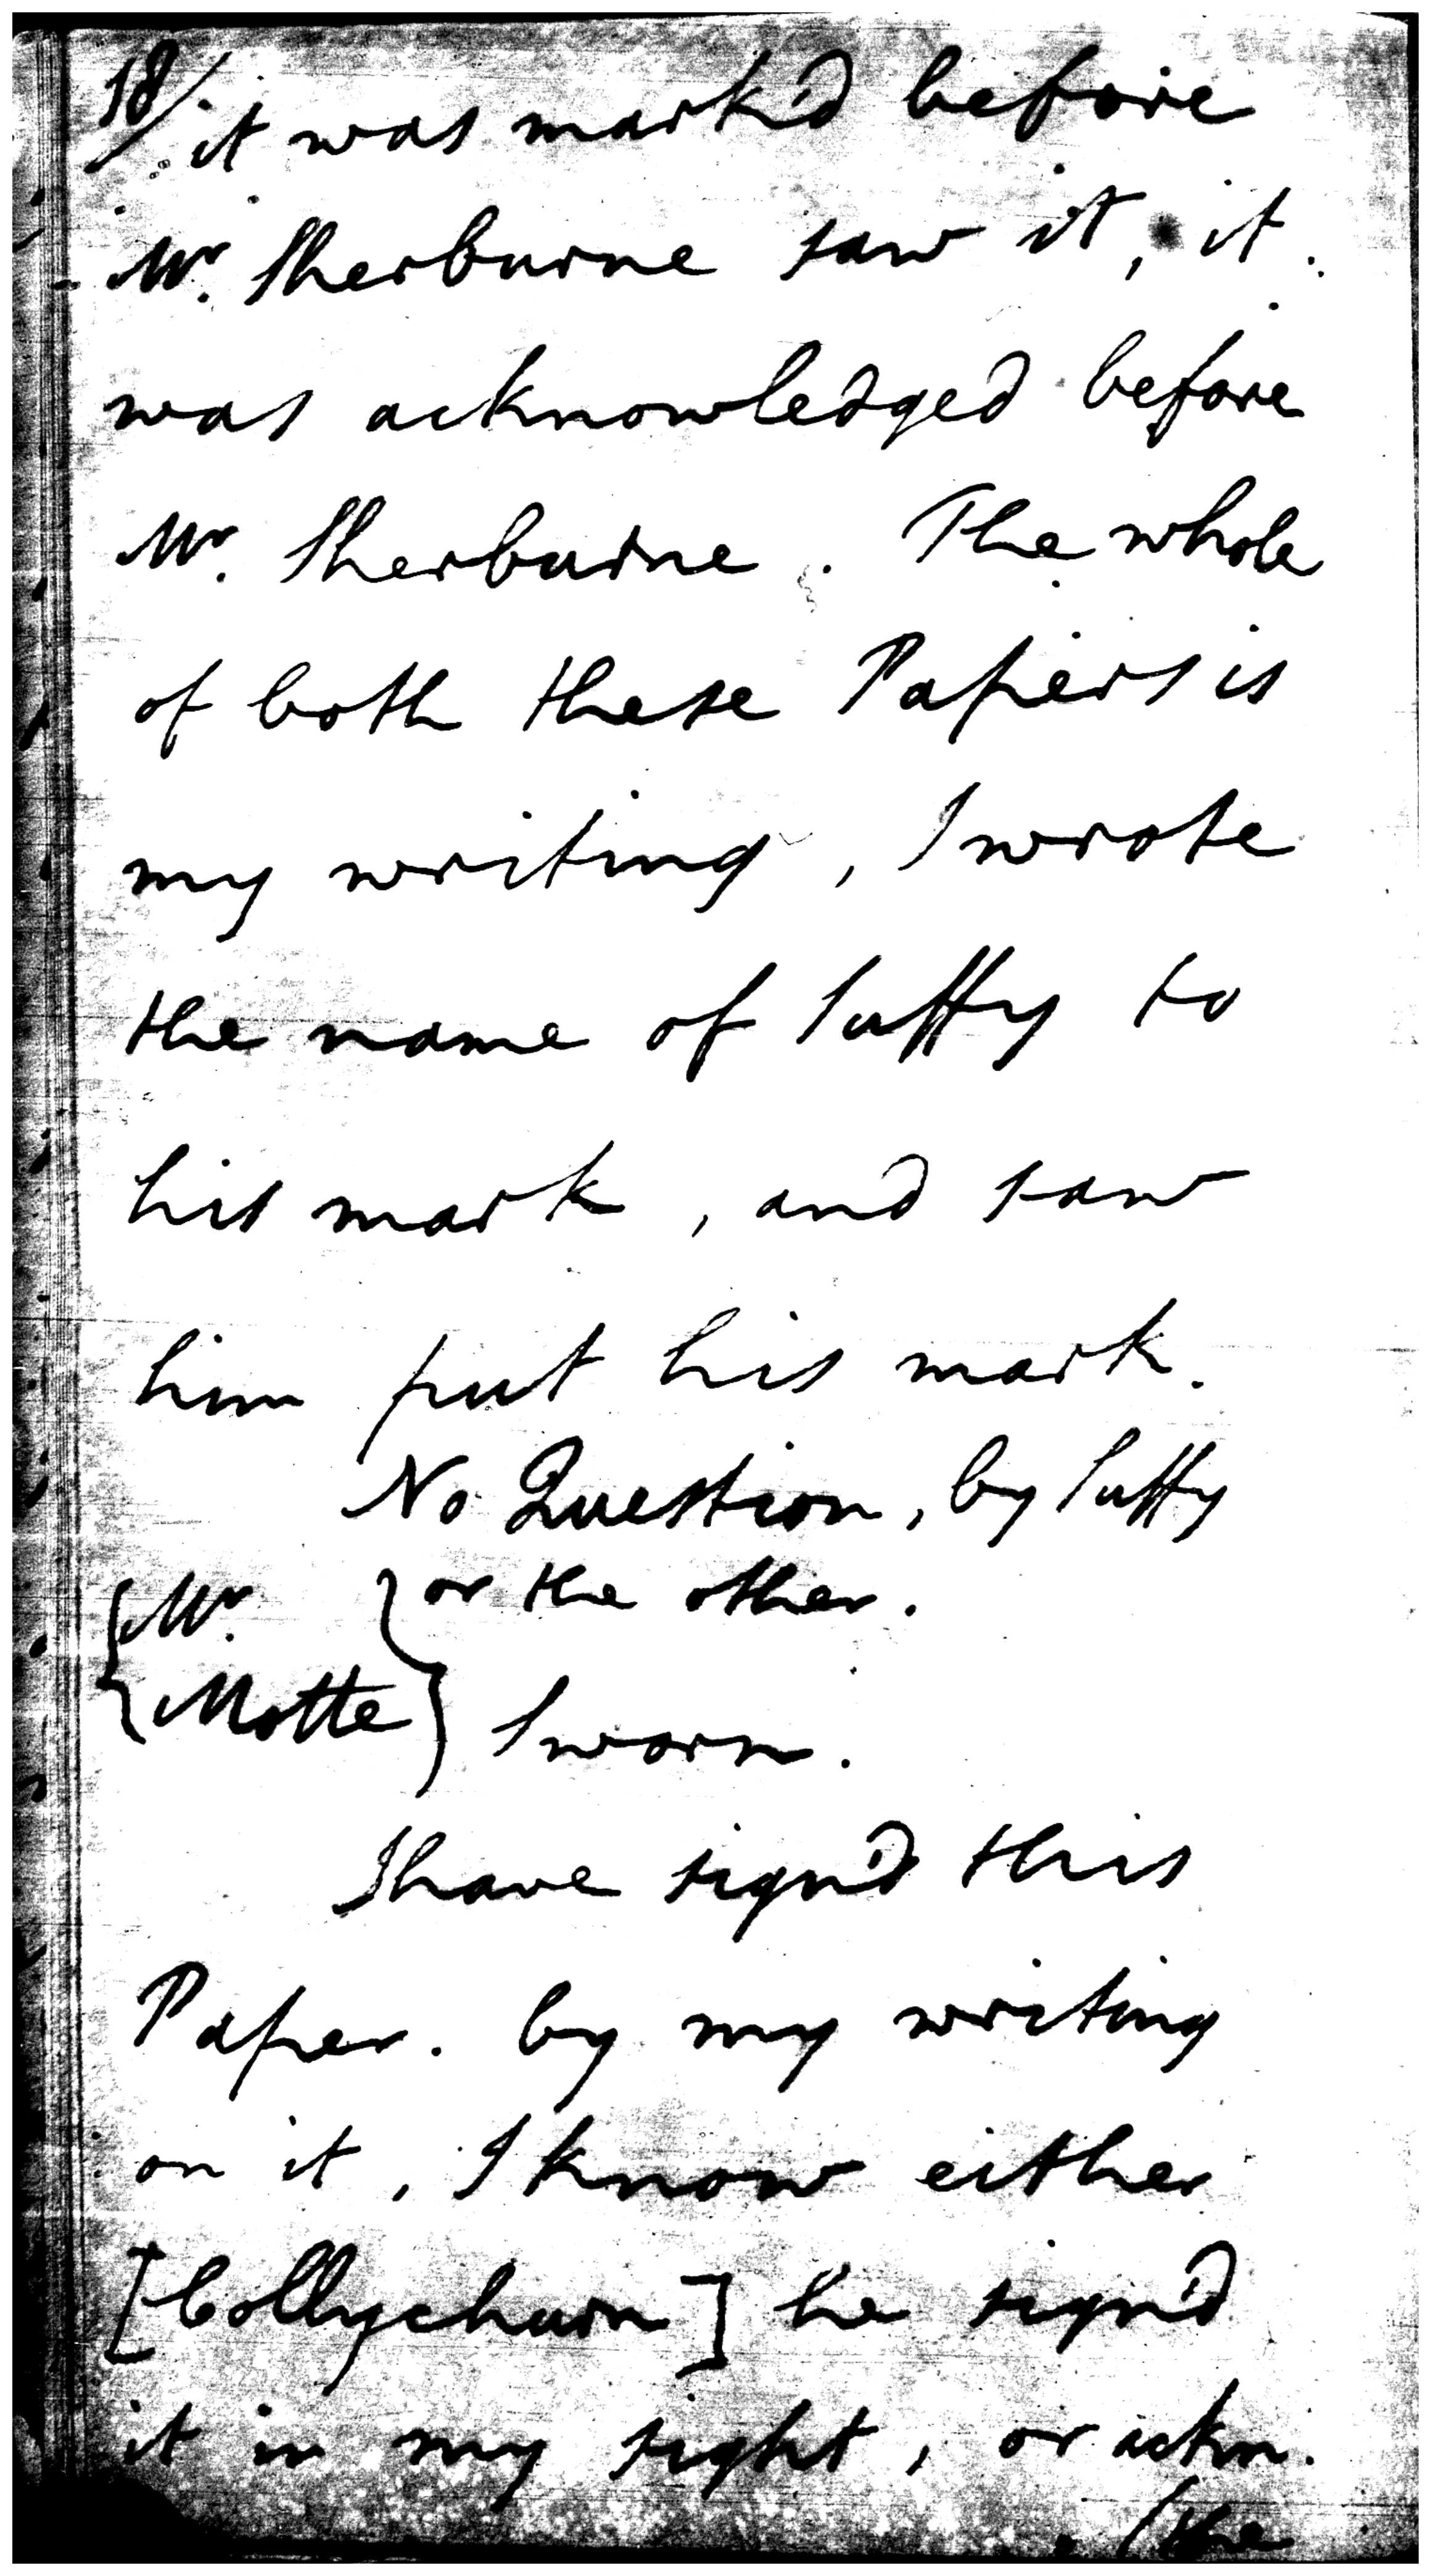 18/ it was mark'd before
Mr. Sherburne saw it, it
was acknowledged before
Mr. Sherburne. The whole
of both these Papers is
my writing, I wrote
the name of Suffy to
his mark, and saw
him put his mark.
No Question, by Suffy
or the other.
{Mr.
Motte} Sworn.
I have sign'd this
Paper. by my writing
on it, I know either
[Collychurn] he sign'd
it in my sight, or ackn.
(the